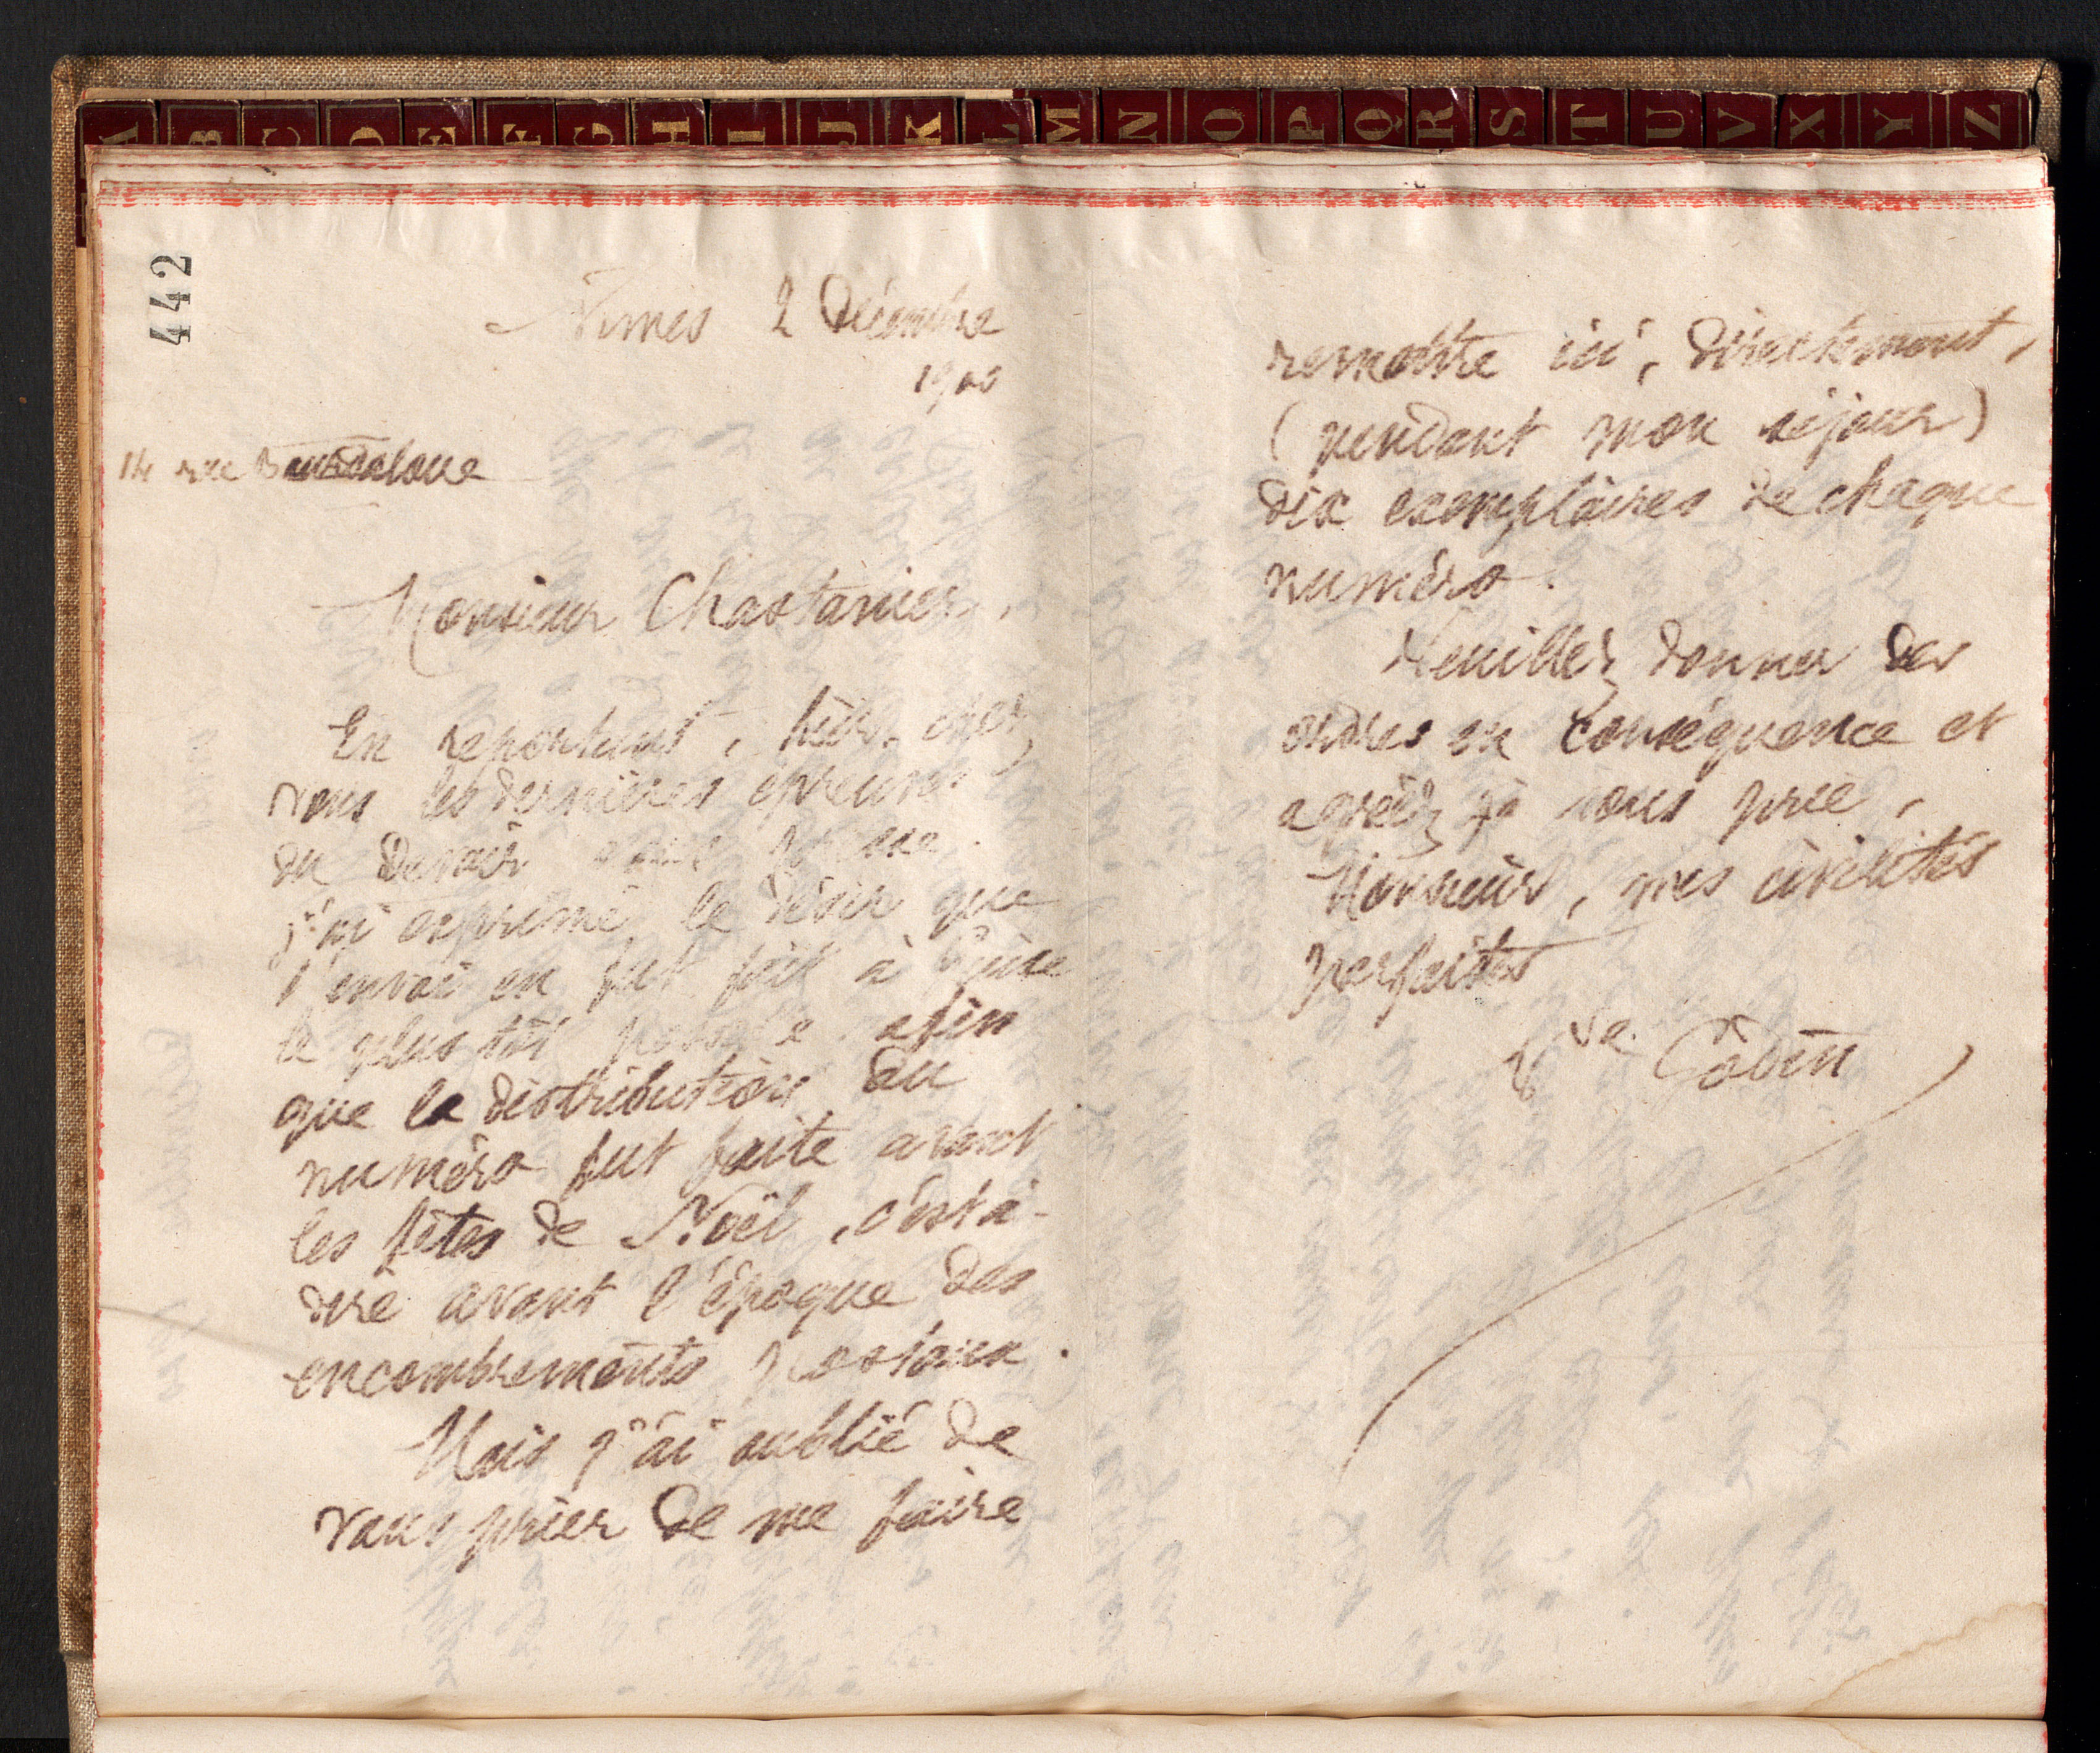 A B C D E F G H I J K L M N O P Q R S T U V X Y Z
442
Nimes 2 Décembre
1900
14 rue Bourdaloue
Monsieur Chastanier,
En reportant, hier, chez
vous les dernières épreuves
du Devoir
j'ai exprimé le désir que
l'envoi en fut fait à Guise
le plus tôt possible afin
que la distribution du
numéro fut faite avant
les fêtes de Noël, c'est à-
dire avant l'époque des
encombrements postaux.
Mais j'ai oublié de
vous prier de me faire
remettre ici, directement,
(pendant mon séjour)
dix exemplaires de chaque
numéro.
Veuillez donner des
ordres en conséquence et
agréez je vous prie,
Monsieur, mes civilités
parfaites
Vve Godin